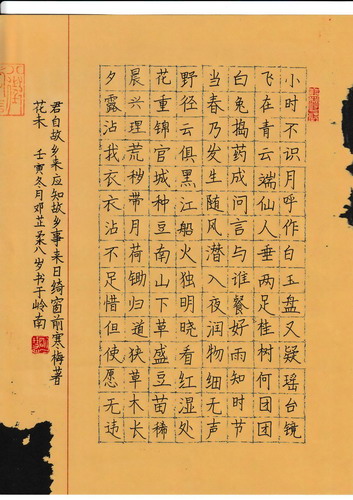 小时不识月呼作白玉盘又疑瑶台镜
飞在青云端仙人垂两足桂树何团团
白兔捣药成问言与谁餐好雨知时节
当春乃发生随风潜入夜润物细无声
野径云俱黑江船火独明晓看红湿处
花重锦官城种豆南山下草盛豆苗稀
晨兴理荒秽带月荷锄归道狭草木长
夕露沾我衣衣沾不足惜但使愿无违
君自故乡来应知故乡事来日绮窗前寒梅著
花未 壬寅冬月邓芷柔八岁书于岭南